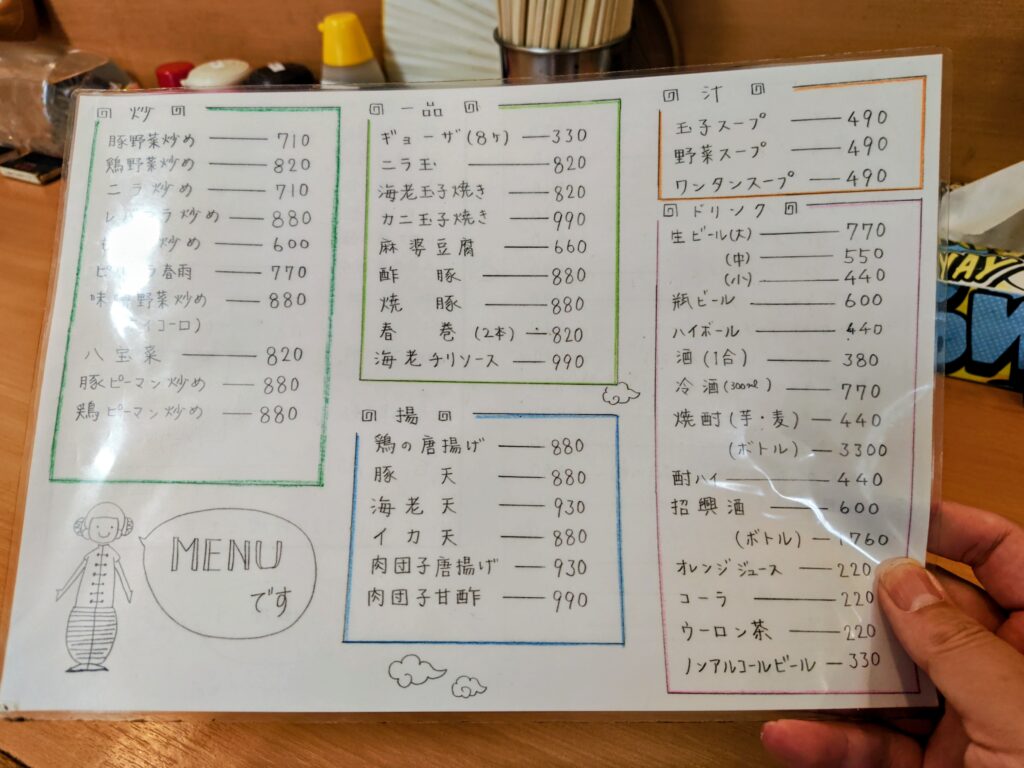 回 炒 回
豚野菜炒め 710
鶏野菜炒め 820
ニラ炒め 710
レバニラ炒め 880
炒め 600
春雨 770
味噌野菜炒め 880
イコーロ)
八宝菜 820
豚ピーマン炒め 880
鶏ピーマン炒め 880
MENU
です
回 一品 回
ギョーザ(8ヶ) 330
ニラ玉 820
海老玉子焼き 820
カニ玉子焼き 990
麻婆豆腐 660
酢豚 880
焼豚 880
春巻(2本) 820
海老チリソース 990
回 揚 回
鶏の唐揚げ 880
豚天 880
海老天 930
イカ天 880
肉団子唐揚げ 930
肉団子甘酢 990
回 汁 回
玉子スープ 490
野菜スープ 490
ワンタンスープ 490
回 ドリンク 回
生ビール(大) 770
(中) 550
(小) 440
瓶ビール 600
ハイボール 440
酒(1合) 380
冷酒(300ml) 770
焼酎(芋・麦) 440
(ボトル) 3300
酎ハイ 440
招興酒 600
(ボトル) 1760
オレンジジュース 220
コーラ 220
ウーロン茶 220
ノンアルコールビール 330